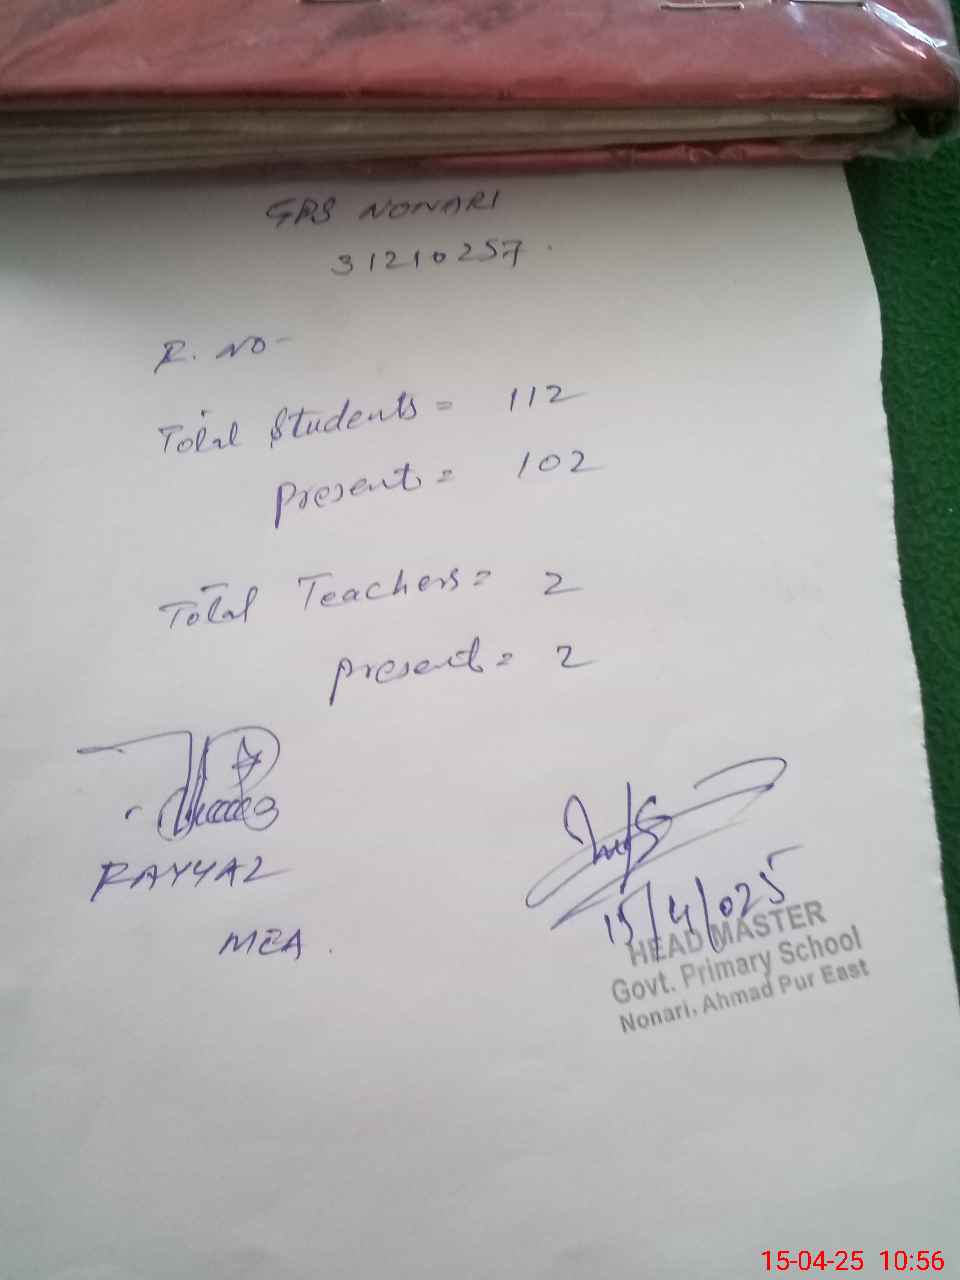 GPS NONARI
31210257.
R. NO-
Total Students = 112
Present = 102
Total Teachers = 2
Present = 2
RAYYAZ
MEA.
15/4/025
HEAD MASTER
Govt. Primary School
Nonari, Ahmad Pur East
15-04-25 10:56